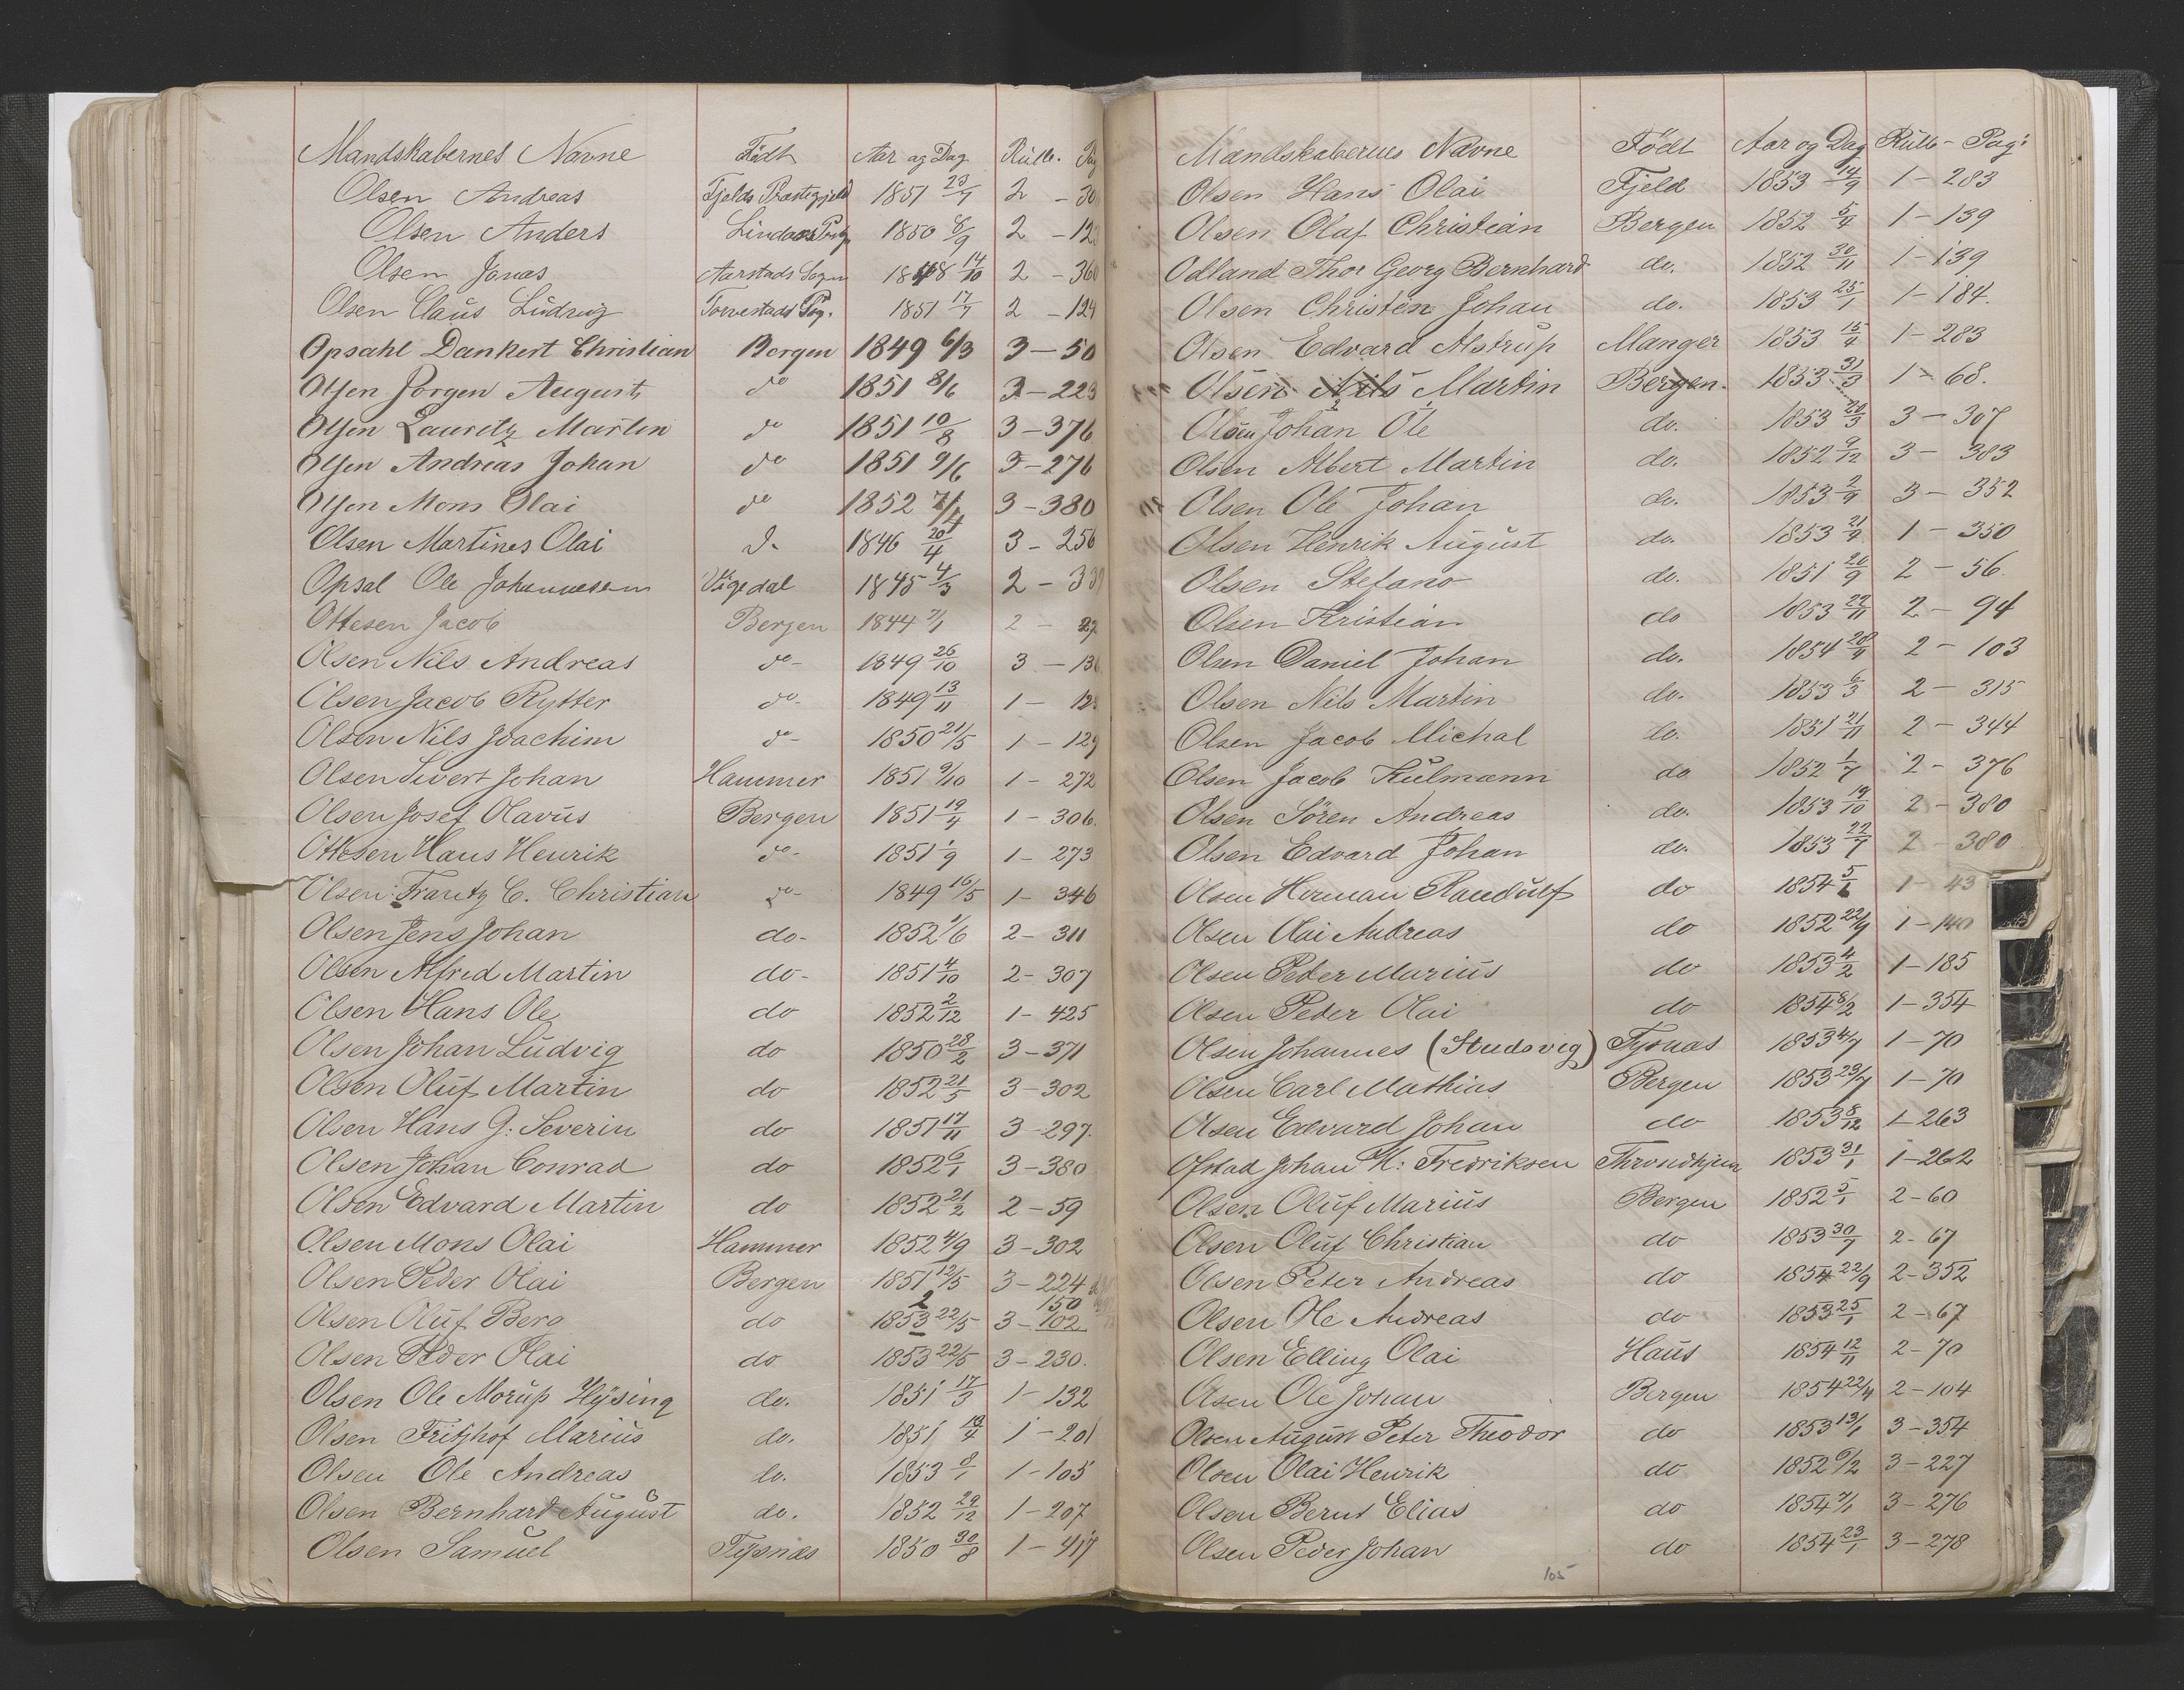 Mandskabernes Navne Födt Aar og Dag Rulle. Pag
Olsen Andreas Fjelds Præstegjeld 1851 23/7 2 - 30
Olsen Anders Lindaas 1850 6/9 2 - 12
Olsen Jonas Aarstads Sogn 1848 14/10 2 - 36
Olsen Claus Ludvig Torvestads 1851 17/7 2 - 124
Opsahl Dankert Christian Bergen 1849 6/3 3 - 50
Olsen Jørgen August do 1851 8/6 3 - 223
Olsen Lauritz Martin do 1851 10/8 3 - 376
Olsen Andreas Johan do 1851 9/6 3 - 276
Olsen Mons Olai do 1852 3 - 380
Olsen Martines Olai do 1846 20/4 3 - 256
Opsal Ole Johannesen 1845 4/3 2 - 33
Ottesen Jacob Bergen 1844 7/1 2 - 27
Olsen Nils Andreas do - 1849 26/10 3 - 13
Olsen Jacob Rytter do - 1849 13/11 1 - 12
Olsen Nils Joachim do - 1850 21/5 1 - 129
Olsen Sivert Johan Hammer 1851 9/10 1 - 272
Olsen Josef Olavus Bergen 1851 19/4 1 - 306.
Ottesen Hans Henrik do - 1851 1/9 1 - 273
Olsen Frantz C. Christian do - 1849 16/5 1 - 346
Olsen Jens Johan do - 1852 1/6 2 - 311
Olsen Alfred Martin do - 1851 4/10 2 - 307
Olsen Hans Ole do 1852 2/12 1 - 425
Olsen Johan Ludvig do 1850 28/2 3 - 371
Olsen Oluf Martin do 1852 21/5 3 - 302
Olsen Hans G. Severin do 1851 17/11 3 - 297.
Olsen Johan Conrad do 1852 6/1 3 - 380
Olsen Edvard Martin do 1852 21/2 2 - 59
Olsen Mons Olai Hammer 1852 4/9 3 - 302
Olsen Peder Olai Bergen 1851 12/5 3 - 224
2 150
Olsen Oluf Berg do 1853 22/5 3 - 102
Olsen Peder Olai do 1853 22/5 3 - 230.
Olsen Ole Morup Hysing do. 1851 17/3 1 - 132
Olsen Fritjhof Marius do. 1851 19/4 1 - 201
Olsen Ole Andreas do. 1853 8/1 1 - 105
Olsen Bernhard August do. 1852 29/12 1 - 207
Olsen Samuel Tysnæs 1850 30/8 1 - 417
Mandskabernes Navne Födt Aar og Dag Rulle - Pag:
Olsen Hans Olai Fjeld 1853 14/9 1 - 283
Olsen Olaf Christian Bergen 1852 5/4 1 - 139
Odland Thor Georg Bernhard do. 1852 30/11 1 - 139
Olsen Christen Johan do. 1853 25/1 1 - 184.
Olsen Edvard Alstrup Manger 1853 15/4 1 - 283
Olsen Nils Martin Bergen. 1853 31/3 1 - 68.
Olsen Johan Ole do. 1853 20/3 3 - 307
Olsen Albert Martin do. 1852 9/12 3 - 383
Olsen Ole Johan do. 1853 2/9 3 - 352
Olsen Henrik August do. 1853 21/9 1 - 350
Olsen Stefano do. 1851 20/9 2 - 56.
Olsen Kristian do 1853 22/11 2 - 94
Olsen Daniel Johan do. 1854 28/4 2 - 103
Olsen Nils Martin do. 1853 6/3 2 - 315
Olsen Jacob Michal do. 1851 21/11 2 - 344
Olsen Jacob Kulmann do 1852 1/7 2 - 376
Olsen Sören Andreas do. 1853 19/10 2 - 380
Olsen Edvard Johan do. 1853 22/7 2 - 380
Olsen Herman Randulf do 1854 5/1 1 - 43
Olsen Olai Andreas do 1852 22/9 1 - 140
Olsen Peder Marius do 1853 4/2 1 - 185
Olsen Peder Olai do 1854 8/2 1 - 354
Olsen Johannes (Studsvig) Tysnæs 1853 4/7 1 - 70
Olsen Carl Mathias Bergen 1853 23/7 1 - 70
Olsen Edvard Johan do 1853 8/12 1 - 263
Ofstad Johan M: Fredriksen Throndhjem 1853 31/1 1 - 262
Olsen Oluf Marius Bergen 1852 5/1 2 - 60
Olsen Oluf Christian do 1853 30/7 2 - 67
Olsen Peter Andreas do 1854 22/9 2 - 352
Olsen Ole Andreas do 1853 25/1 2 - 67
Olsen Elling Olai Haus 1854 12/11 2 - 70
Olsen Ole Johan Bergen 1854 22/4 2 - 104
Olsen August Peter Theodor do 1853 13/1 3 - 354
Olsen Olai Henrik do 1852 6/2 3 - 227
Olsen Bernt Elias do 1854 7/1 3 - 276
Olsen Peder Johan do 1854 23/1 3 - 278
105